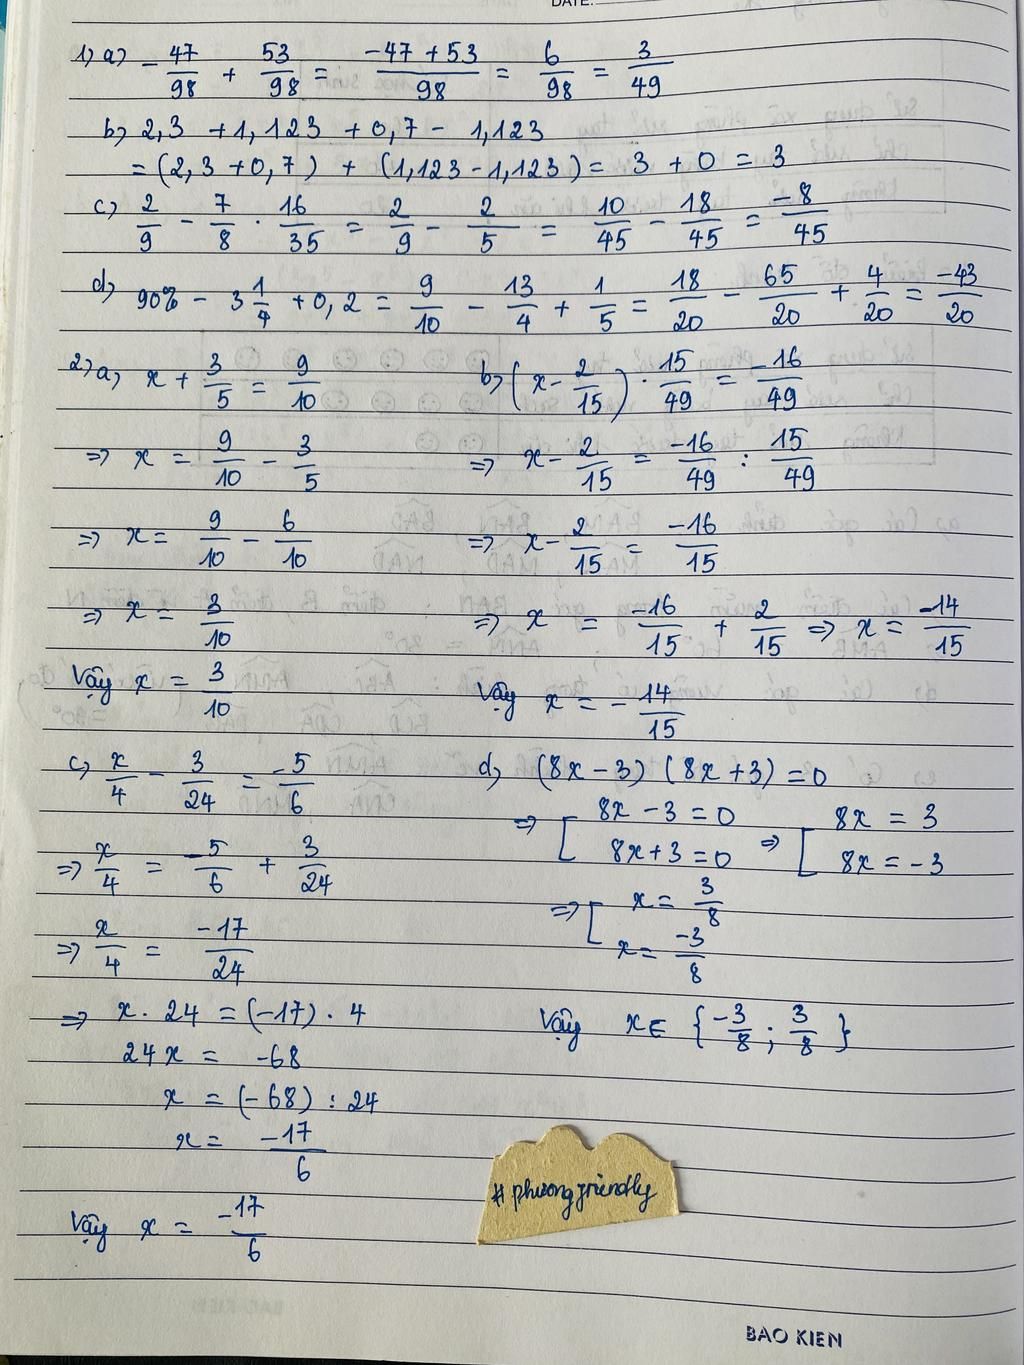 DATE:
1) a) - 47/98 + 53/98 = (-47 + 53)/98 = 6/98 = 3/49
b) 2,3 + 1,123 + 0,7 - 1,123
= (2,3 + 0,7) + (1,123 - 1,123) = 3 + 0 = 3
c) 2/9 - 7/8 . 16/35 = 2/9 - 2/5 = 10/45 - 18/45 = -8/45
d) 90% - 3 1/4 + 0,2 = 9/10 - 13/4 + 1/5 = 18/20 - 65/20 + 4/20 = -43/20
2) a) x + 3/5 = 9/10
=> x = 9/10 - 3/5
=> x = 9/10 - 6/10
=> x = 3/10
Vậy x = 3/10
b) (x - 2/15) . 15/49 = -16/49
=> x - 2/15 = -16/49 : 15/49
=> x - 2/15 = -16/15
=> x = -16/15 + 2/15 => x = -14/15
Vậy x = - 14/15
c) x/4 - 3/24 = -5/6
=> x/4 = -5/6 + 3/24
=> x/4 = -17/24
=> x . 24 = (-17) . 4
24x = -68
x = (-68) : 24
x = -17/6
Vậy x = -17/6
d) (8x - 3) (8x + 3) = 0
=> [ 8x - 3 = 0 => [ 8x = 3
8x + 3 = 0 8x = -3
=> [ x = 3/8
x = -3/8
Vậy x ∈ { -3/8 ; 3/8 }
# phuongfriendly
BAO KIEN